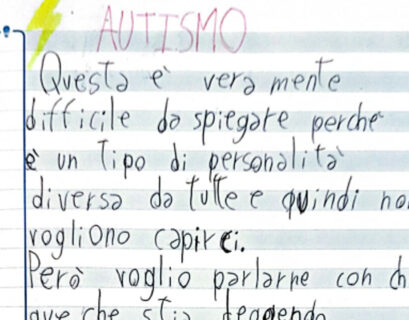 AUTISMO
Questa è vera mente
difficile da spiegare perche
è un tipo di personalità
diversa da tutte e quindi no
vogliono capirci.
Però voglio parlarne con ch
que che stia leggendo